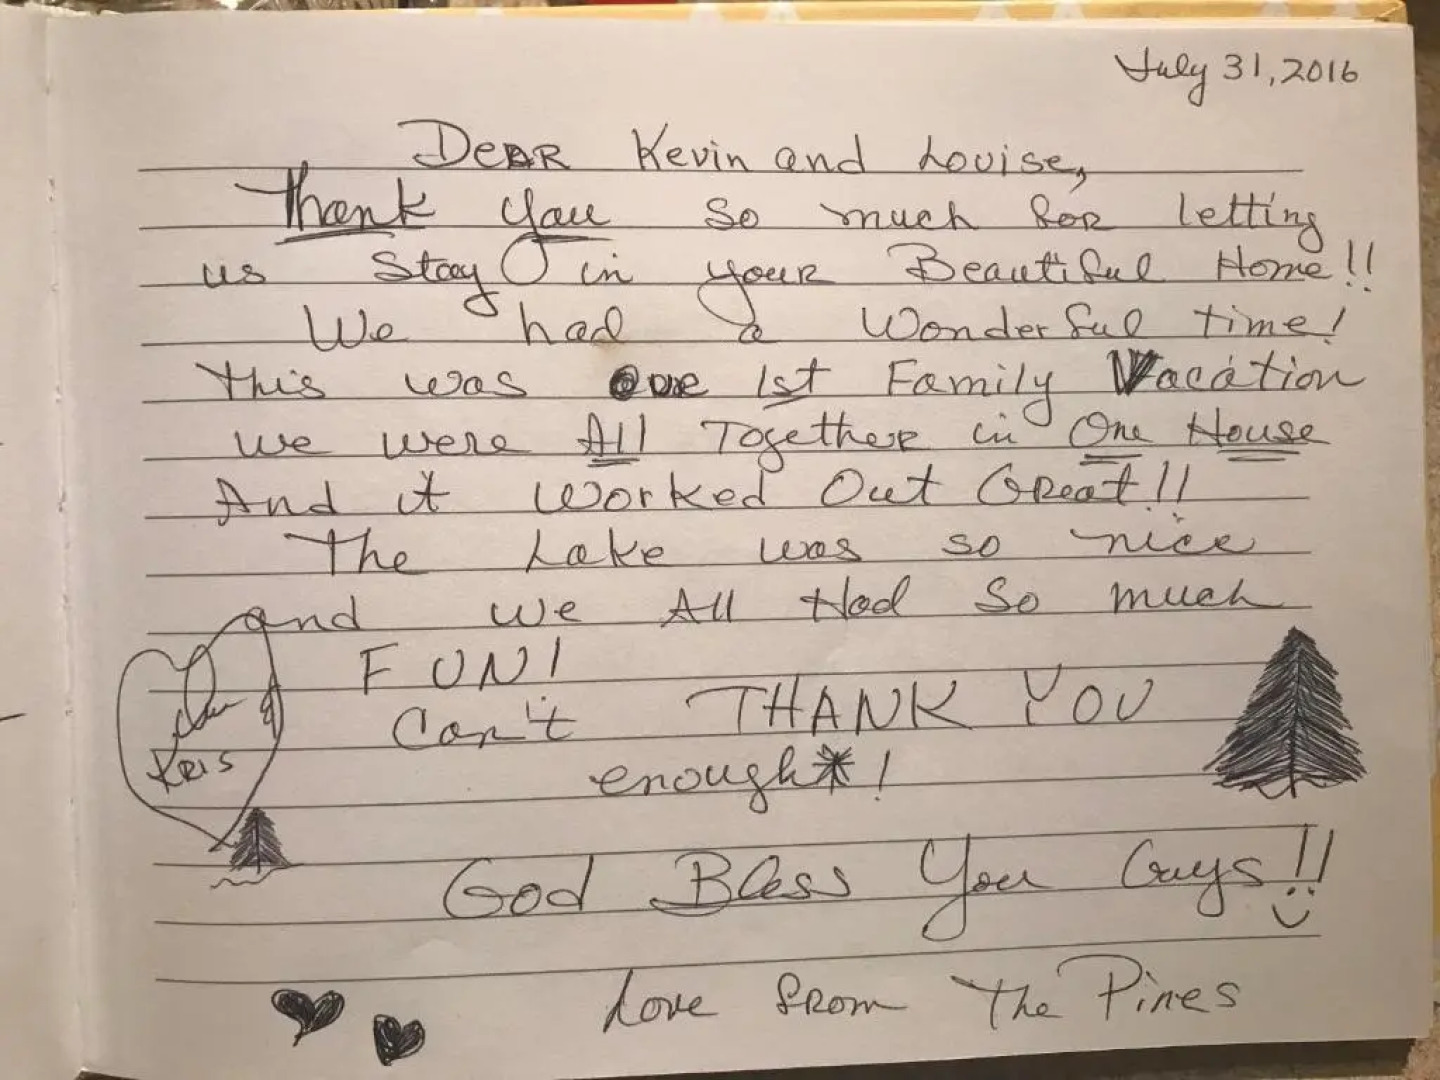 July 31, 2016
Dear Kevin and Louise,
Thank You so much for letting
us Stay in your Beautiful Home!!
We had a Wonderful time!
This was our 1st Family Vacation
we were All Together in One House
And it Worked Out Great!!
The Lake was so nice
and we All Had So much
FUN!
Can't THANK YOU
enough*!
KRIS
God Bless You Guys!!
Love from The Pines